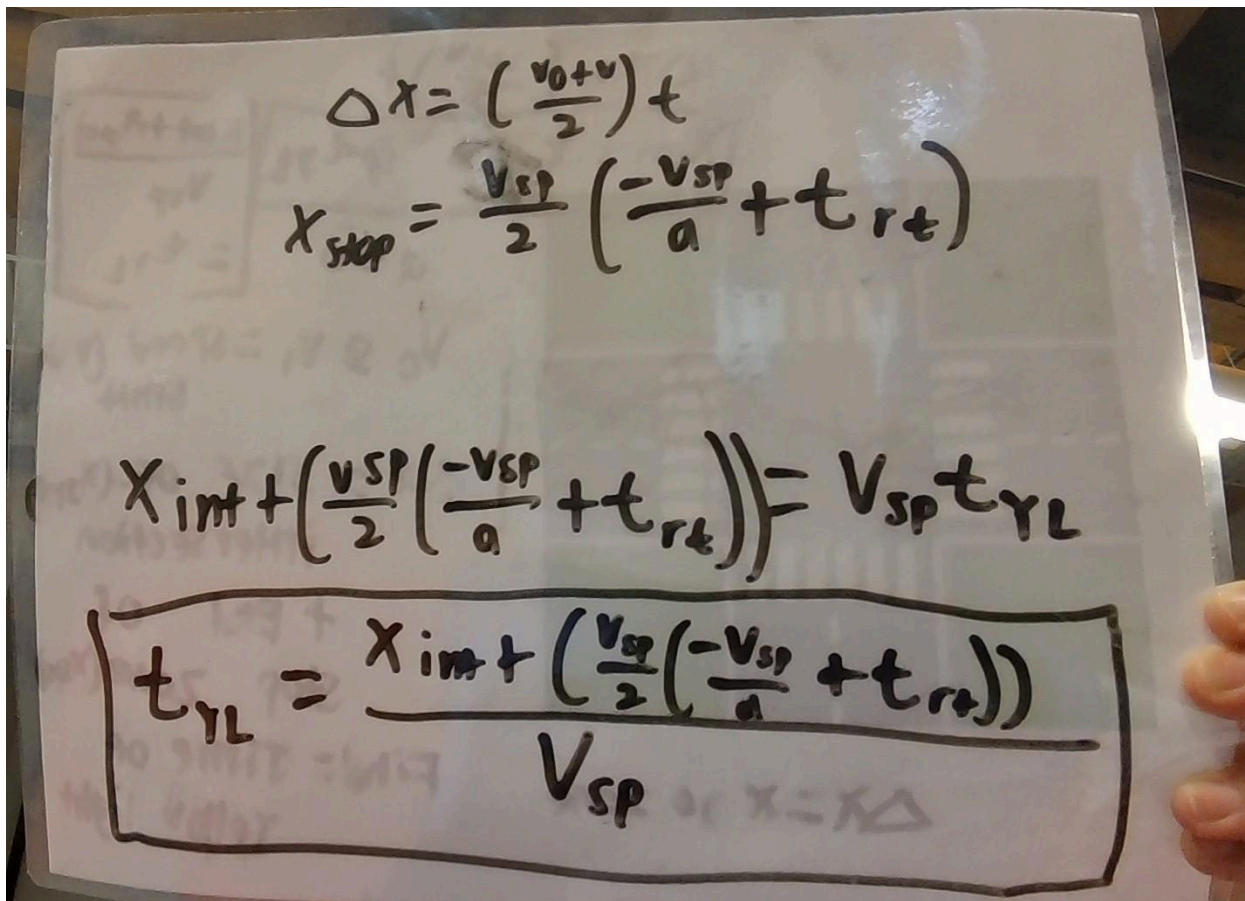 Δx = (v₀+v / 2) t
x stop = Vsp / 2 (-Vsp / a + t rt)
x int + (vsp / 2 (-vsp / a + t rt)) = Vsp t YL
t YL = x int + (Vsp / 2 (-Vsp / a + t rt)) / Vsp